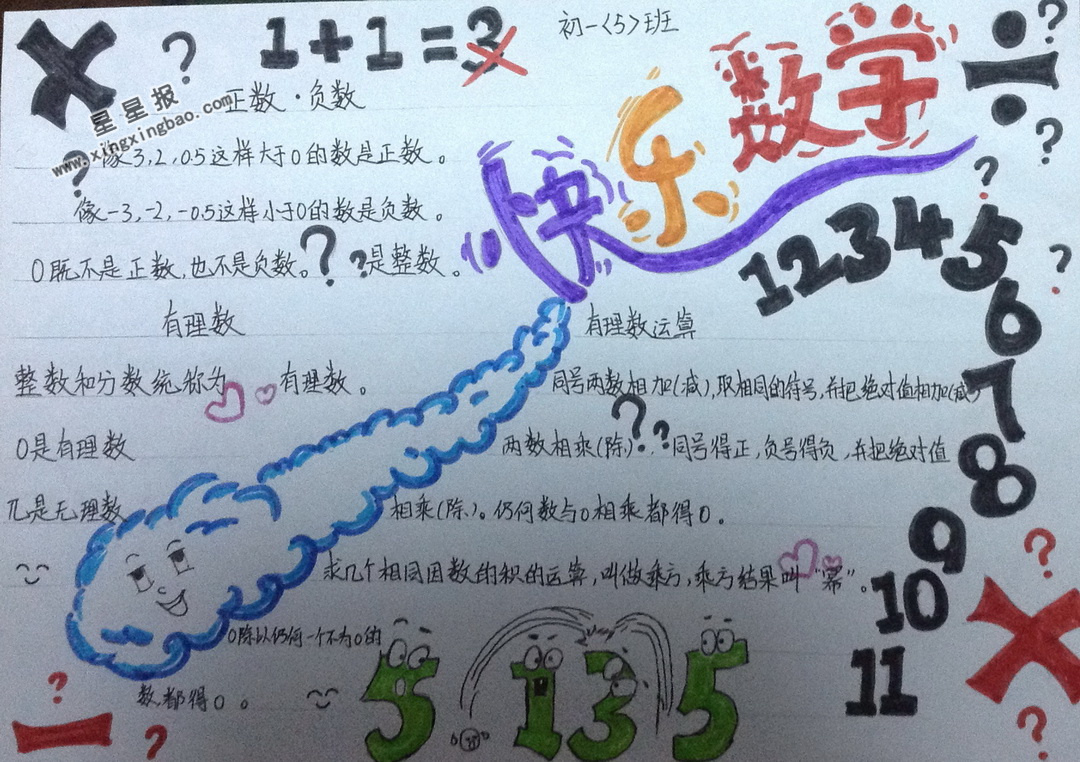 1+1=3
初一<5>班
快乐数学
星星报
www.xingxingbao.com
正数·负数
像3,2,0.5这样大于0的数是正数。
像-3,-2,-0.5这样小于0的数是负数。
0既不是正数,也不是负数。? ?是整数。
有理数
整数和分数统称为 有理数。
0是有理数
π是无理数
有理数运算
同号两数相加(减),取相同的符号,并把绝对值相加(减)
两数相乘(除),??同号得正,负号得负,并把绝对值
相乘(除)。任何数与0相乘都得0。
求几个相同因数的积的运算,叫做乘方,乘方结果叫“幂”。
0除以任何一个不为0的
数都得0。
1 2 3 4 5 6 7 8 9 10 11
5 1 3 5